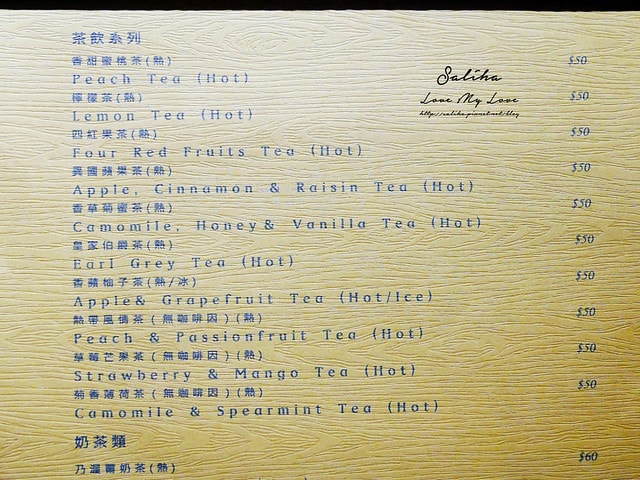 茶飲系列
香甜蜜桃茶(熱) $50
Peach Tea (Hot)
檸檬茶(熱) $50
Lemon Tea (Hot)
四紅果茶(熱) $50
Four Red Fruits Tea (Hot)
異國蘋果茶(熱) $50
Apple, Cinnamon & Raisin Tea (Hot)
香草菊蜜茶(熱) $50
Camomile, Honey& Vanilla Tea (Hot)
皇家伯爵茶(熱) $50
Earl Grey Tea (Hot)
香蘋柚子茶(熱/冰) $50
Apple& Grapefruit Tea (Hot/Ice)
熱帶風情茶(無咖啡因)(熱) $50
Peach & Passionfruit Tea (Hot)
草莓芒果茶(無咖啡因)(熱) $50
Strawberry & Mango Tea (Hot)
菊香薄荷茶(無咖啡因)(熱) $50
Camomile & Spearmint Tea (Hot)
奶茶類
乃渥爾奶茶(熱) $60
Saliha
Love My Love
http://saliha.pixnet.net/blog